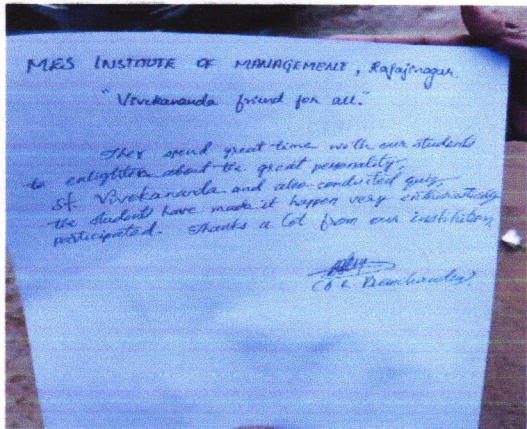 MES INSTITUTE OF MANAGEMENT, Rajajinagar.
"Vivekananda friend for all."
They spend great time with our students
to enlighten about the great personality,
st. Vivekananda and also conducted quiz,
the students have made it happen very enthusiastically
participated. Thanks a lot from our institution,